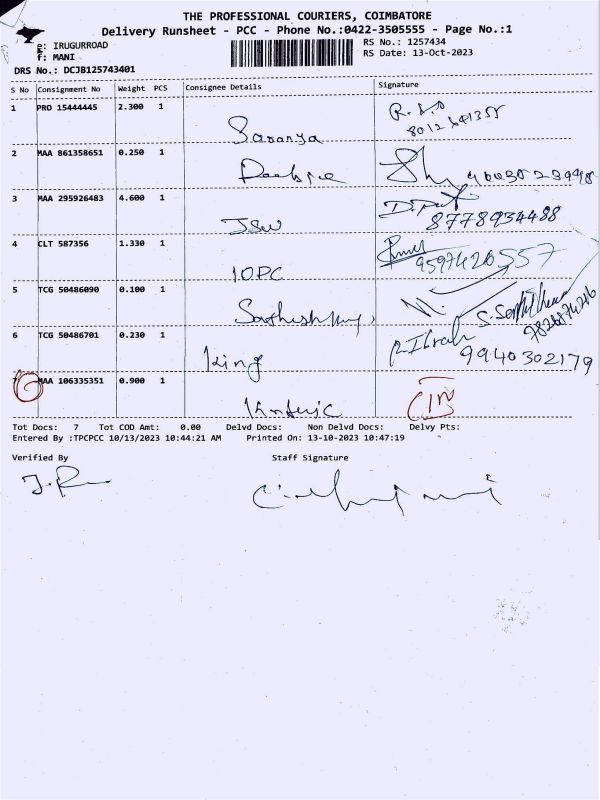 THE PROFESSIONAL COURIERS, COIMBATORE
Delivery Runsheet - PCC - Phone No.:0422-3505555 - Page No.:1
: IRUGURROAD
f: MANI
RS No.: 1257434
RS Date: 13-Oct-2023
DRS No.: DCJB125743401
S No Consignment No Weight PCS Consignee Details Signature
1 PRO 15444445 2.300 1
Saranya
2 MAA 861358651 0.250 1
3 MAA 295926483 4.600 1
JSW
D.
8778934488
4 CLT 587356 1.330 1
IOPC
9597426557
5 TCG 50486090 0.100 1
7826874216
6 TCG 50486701 0.230 1
King
9940302179
7 MAA 106335351 0.900 1
Tot Docs: 7 Tot COD Amt: 0.00 Delvd Docs: Non Delvd Docs: Delvy Pts:
Entered By :TPCPCC 10/13/2023 10:44:21 AM Printed On: 13-10-2023 10:47:19
Verified By Staff Signature